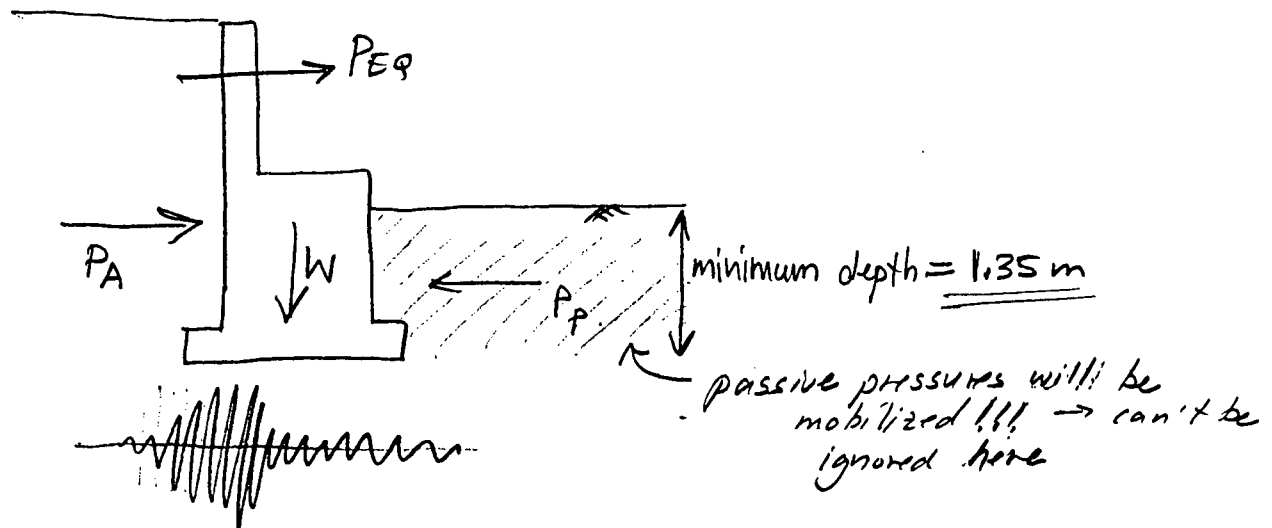 P_EQ
P_A
W
P_P
minimum depth = 1.35 m
passive pressures will be
mobilized !!! → can't be
ignored here